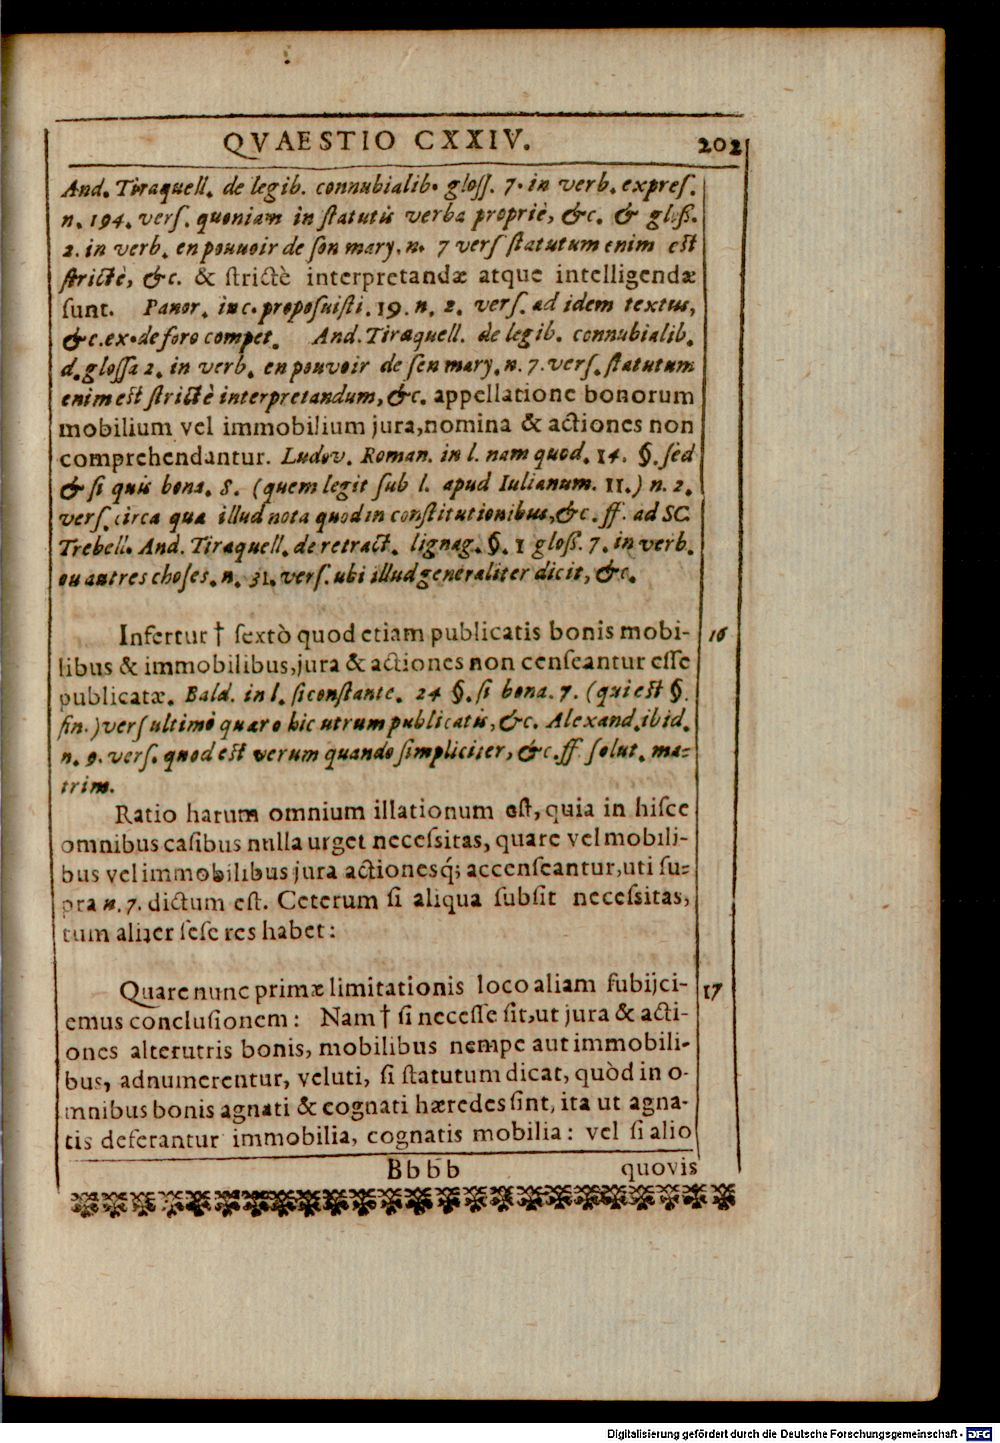 QVAESTIO CXXIV. 202
And. Tiraquell. de legib. connubialib. gloſſ. 7. in verb. expreſ.
n. 194. verſ. quoniam in ſtatutis verba propriè, &c. & gloß.
2. in verb. en pouuoir de ſon mary. n. 7 verſ ſtatutum enim est
ſtrictè, &c. & ſtrictè interpretandæ atque intelligendæ
ſunt. Panor. in c. propoſuiſti. 19. n. 2. verſ. ad idem textus,
&c. ex. de foro compet. And. Tiraquell. de legib. connubialib.
d. gloſſa 2. in verb. en pouvoir de ſen mary. n. 7. verſ. ſtatutum
enim est ſtrictè interpretandum, &c. appellatione bonorum
mobilium vel immobilium jura, nomina & actiones non
comprehendantur. Ludov. Roman. in l. nam quod. 14. §. ſed
& ſi quis bona. 8. (quem legit ſub l. apud Iulianum. 11.) n. 2.
verſ. circa qua illud nota quod in conſtitutionibus, &c. ff. ad SC.
Trebell. And. Tiraquell. de retract. lignag. §. 1 gloß. 7. in verb.
ou autres choſes. n. 31. verſ. ubi illud generaliter dicit, &c.
Infertur † ſextò quod etiam publicatis bonis mobi- 16
libus & immobilibus, jura & actiones non cenſeantur eſſe
publicatæ. Bald. in l. ſi conſtante. 24 §. ſi bona. 7. (qui est §.
fin.) verſ ultimò quæro hic utrum publicatis, &c. Alexand. ibid.
n. 9. verſ. quod est verum quando ſimpliciter, &c. ff. ſolut. ma-
trim.
Ratio harum omnium illationum eſt, quia in hiſce
omnibus caſibus nulla urget neceſsitas, quare vel mobili-
bus vel immobilibus jura actionesq́; accenſeantur, uti ſu-
pra n. 7. dictum eſt. Ceterum ſi aliqua subſit neceſsitas,
tum aliter ſeſe res habet:
Quare nunc primæ limitationis loco aliam ſubijci- 17
emus concluſionem: Nam † ſi neceſſe ſit, ut jura & acti-
ones alterutris bonis, mobilibus nempe aut immobili-
bus, adnumerentur, veluti, ſi ſtatutum dicat, quòd in o-
mnibus bonis agnati & cognati hæredes ſint, ita ut agna-
tis deferantur immobilia, cognatis mobilia: vel ſi alio
Bbbb quovis
Digitalisierung gefördert durch die Deutsche Forschungsgemeinschaft - DFG